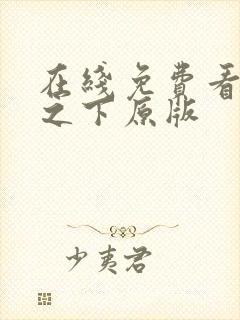 在线免费看
之下原版
少夷君